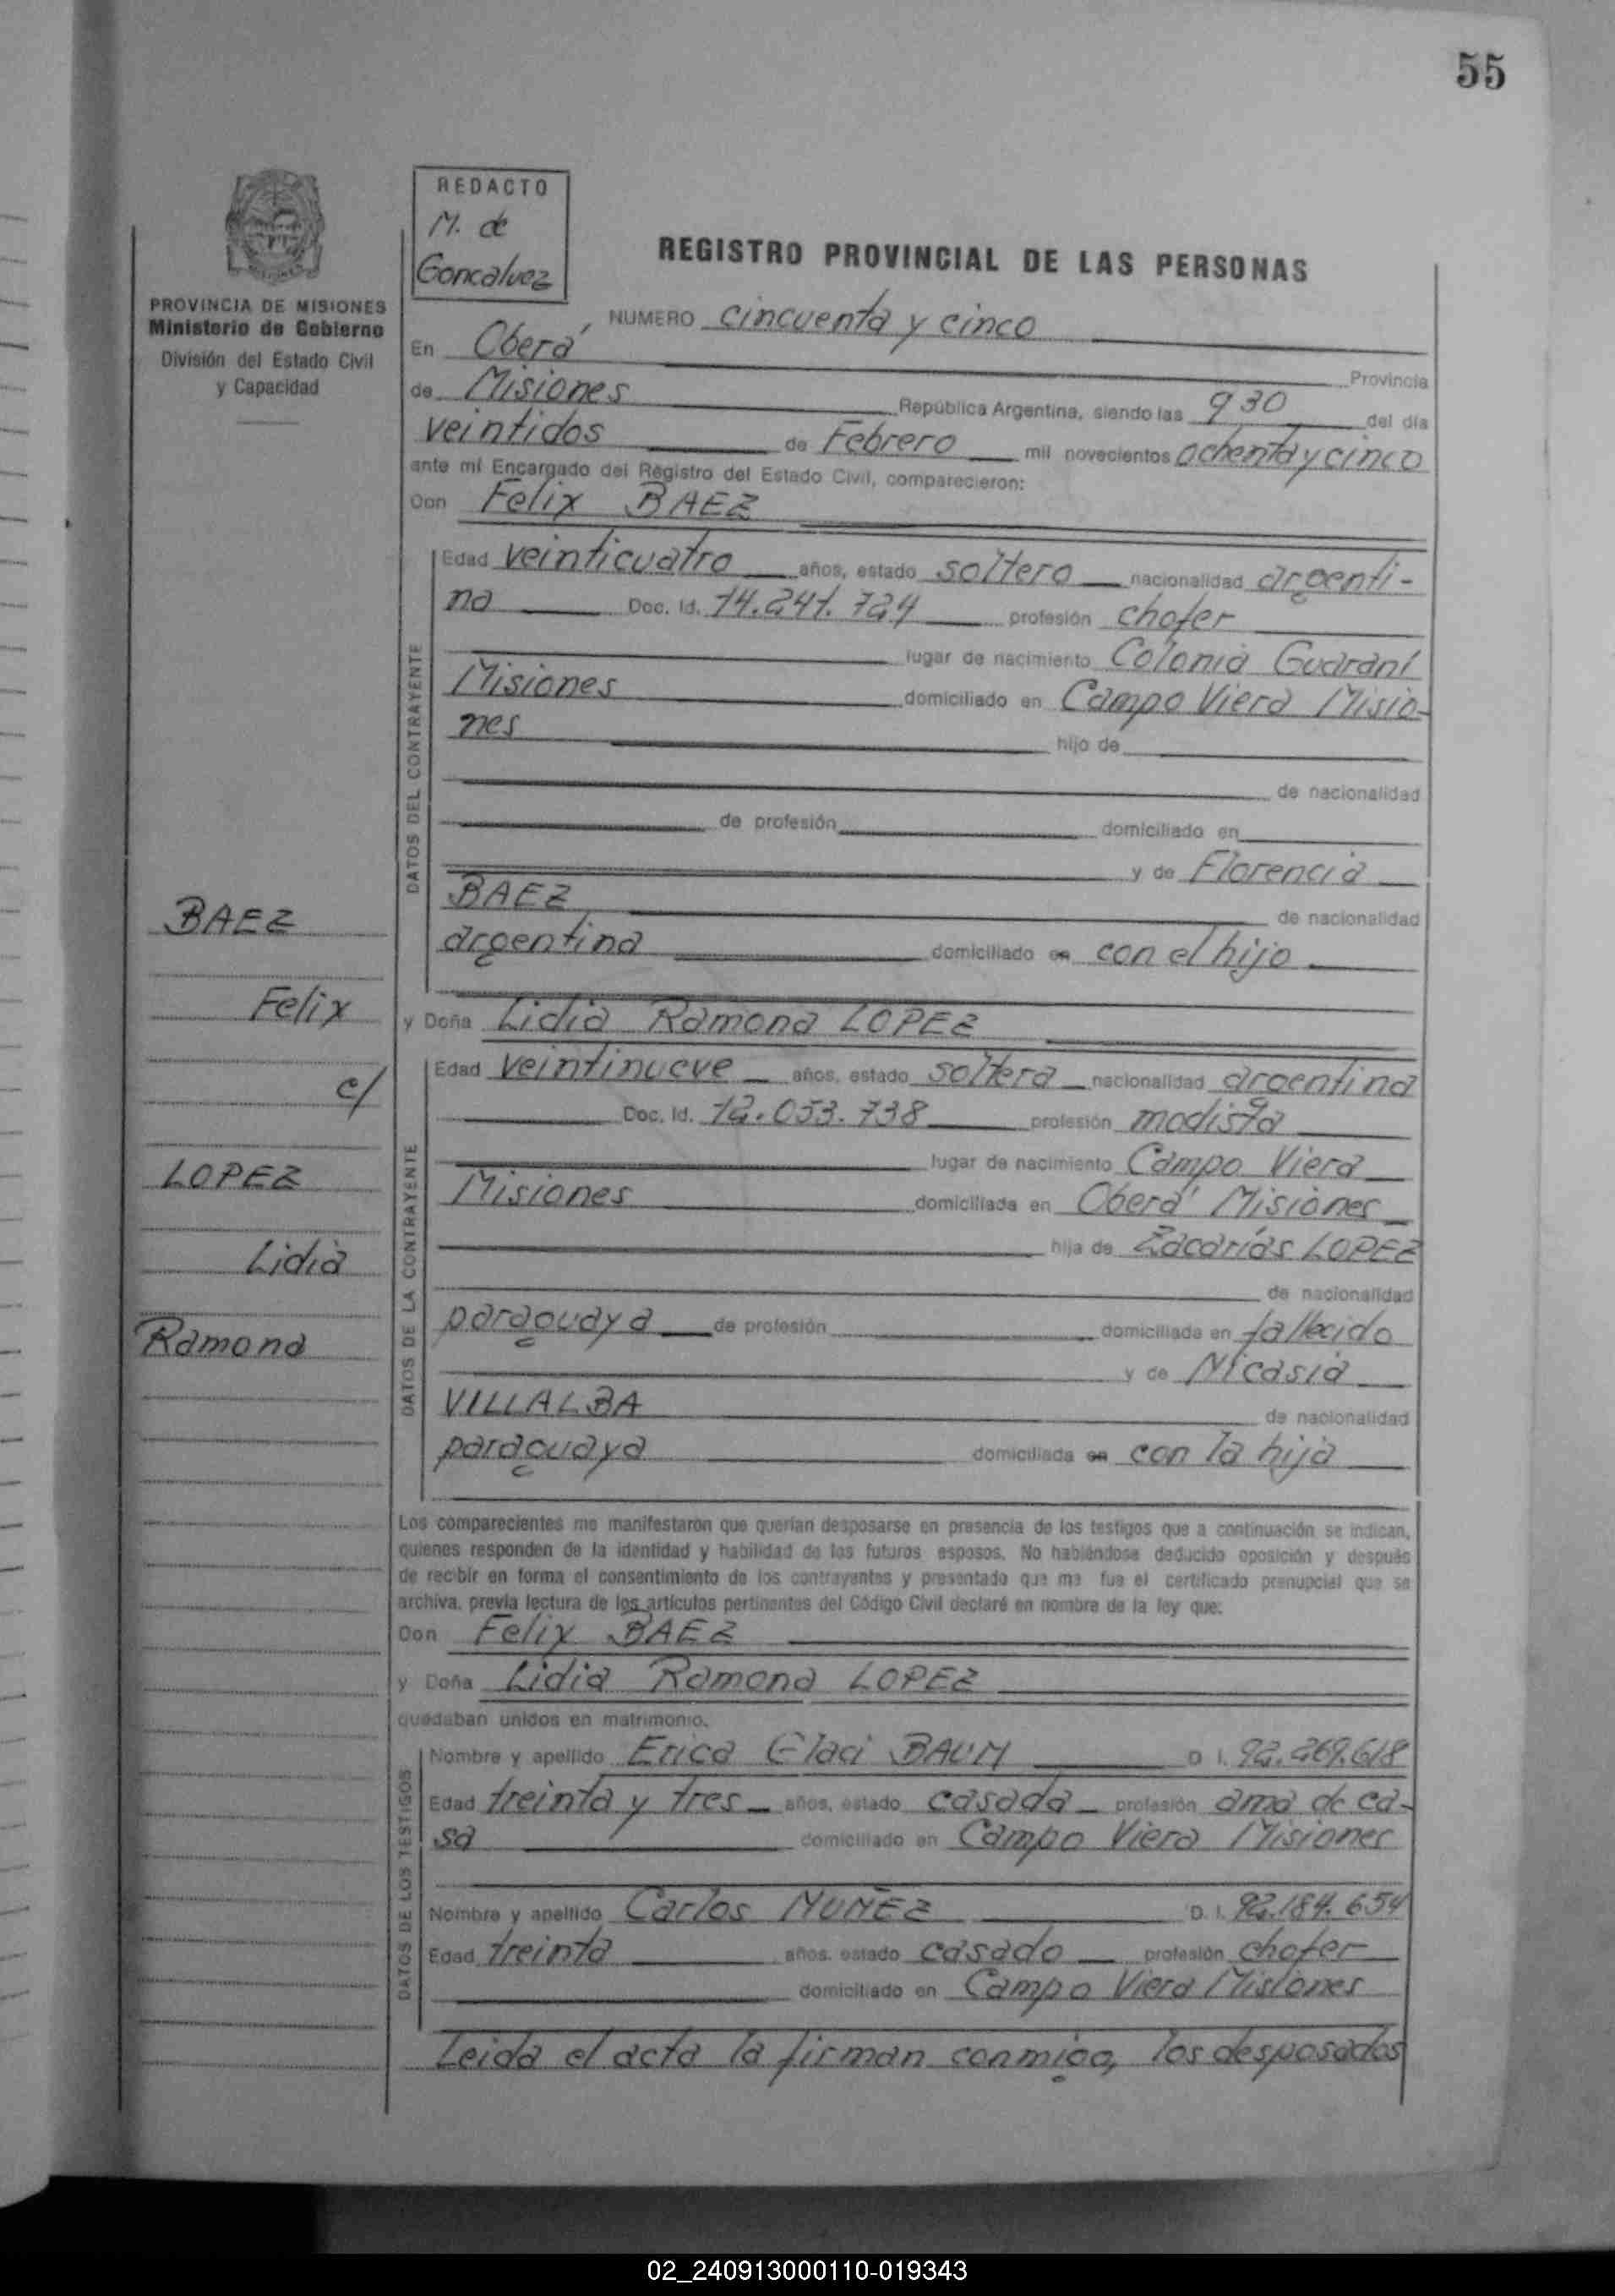 55
REDACTO
M. de
Goncalvez
PROVINCIA DE MISIONES
Ministerio de Gobierno
División del Estado Civil
y Capacidad
REGISTRO PROVINCIAL DE LAS PERSONAS
NUMERO cincuenta y cinco
En Oberá Provincia
de Misiones República Argentina, siendo las 930 del día
veintidos de Febrero mil novecientos ochenta y cinco
ante mí Encargado del Registro del Estado Civil, comparecieron:
Don Felix BAEZ
DATOS DEL CONTRAYENTE
Edad veinticuatro años, estado soltero nacionalidad argenti-
na Doc. Id. 14.241.724 profesión chofer
lugar de nacimiento Colonia Guaraní
Misiones domiciliado en Campo Viera Misio-
nes hijo de
de nacionalidad
de profesión domiciliado en
y de Florencia
BAEZ de nacionalidad
argentina domiciliado en con el hijo
y Doña Lidia Ramona LOPEZ
DATOS DE LA CONTRAYENTE
Edad veintinueve años, estado soltera nacionalidad argentina
Doc. Id. 12.053.738 profesión modista
lugar de nacimiento Campo Viera
Misiones domiciliada en Oberá Misiones
hija de Zacarías LOPEZ
de nacionalidad
paraguaya de profesión domiciliada en fallecido
y de Nicasia
VILLALBA de nacionalidad
paraguaya domiciliada en con la hija
BAEZ
Felix
c/
LOPEZ
Lidia
Ramona
Los comparecientes me manifestaron que querían desposarse en presencia de los testigos que a continuación se indican,
quienes responden de la identidad y habilidad de los futuros esposos. No habiéndose deducido oposición y después
de recibir en forma el consentimiento de los contrayentes y presentado que me fue el certificado prenupcial que se
archiva, previa lectura de los artículos pertinentes del Código Civil declaré en nombre de la ley que:
Don Felix BAEZ
y Doña Lidia Ramona LOPEZ
quedaban unidos en matrimonio.
DATOS DE LOS TESTIGOS
Nombre y apellido Erica Glaci BAUM D I. 92.269.618
Edad treinta y tres años, estado casada profesión ama de ca-
sa domiciliado en Campo Viera Misiones
Nombre y apellido Carlos NUÑEZ D. I. 92.184.654
Edad treinta años, estado casado profesión chofer
domiciliado en Campo Viera Misiones
Leida el acta la firman conmigo, los desposados
02_240913000110-019343